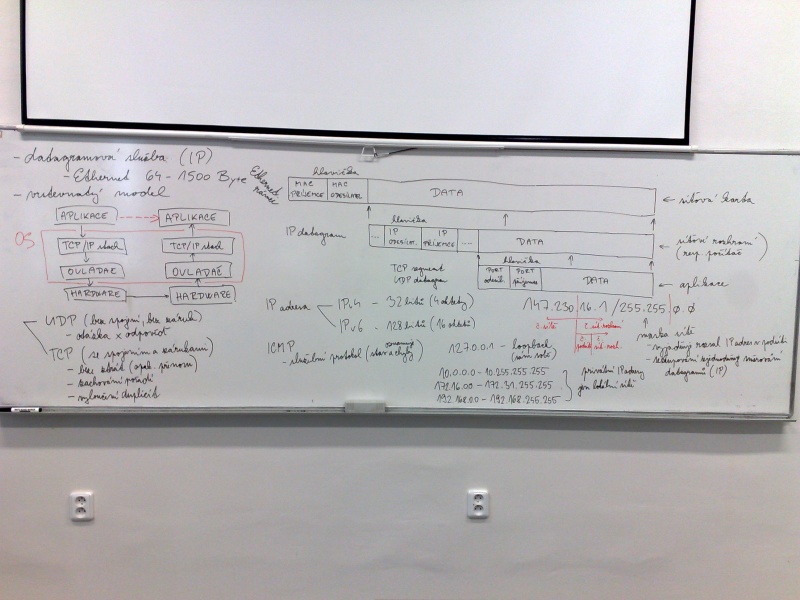 - datagramová služba (IP)
- Ethernet 64 - 1500 Byte
- vrstevnatý model
APLIKACE
APLIKACE
OS
TCP/IP stack
TCP/IP stack
OVLADAČ
OVLADAČ
HARDWARE
HARDWARE
UDP (bez spojení, bez záruk)
- otázka x odpověď
TCP (se spojením a zárukami)
- bez ztrát (opak. přenosu)
- zachování pořadí
- vyloučení duplicit
Ethernet
hlavička
MAC PŘÍJEMCE
MAC ODESÍLAT.
DATA
← síťová karta
IP datagram
hlavička
...
IP ODESÍL.
IP PŘÍJEMCE
....
DATA
← síťové rozhraní
(resp. počítač)
TCP segment
UDP datagram
hlavička
PORT odesíl.
PORT příjemce
DATA
← aplikace
IP adresa
IPv4 - 32 bitů (4 oktety)
IPv6 - 128 bitů (16 oktetů)
147.230.16.1/255.255.0.0
č. sítě
maska sítě
ICMP
- služební protokol (stav a chyby)
127.0.0.1 - loopback
10.0.0.0 - 10.255.255.255
172.16.0.0 - 172.31.255.255
192.168.0.0 - 192.168.255.255
privátní IP adresy
pro lokální sítě
datagramů (IP)